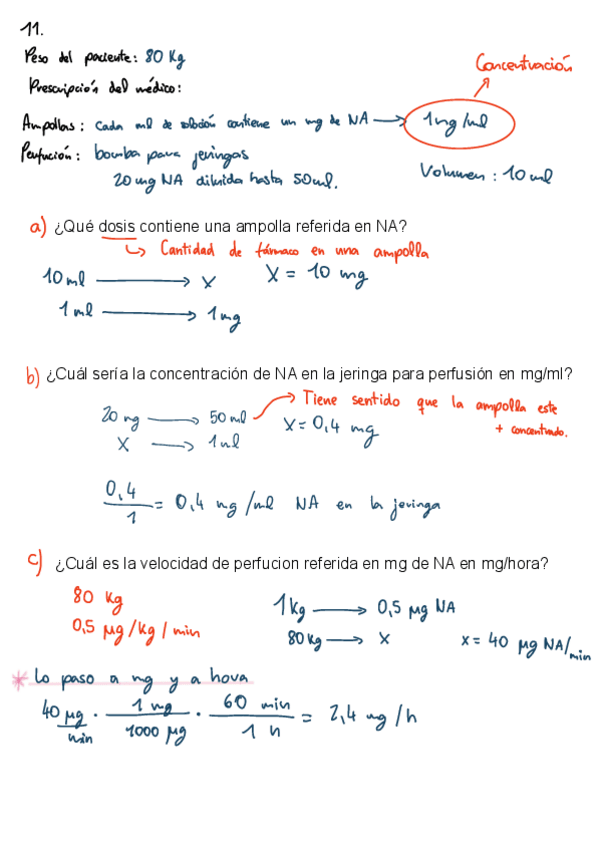 11.
Peso del paciente: 80 Kg
Prescripción del médico:
Concentración
Ampollas: Cada ml de solución contiene un mg de NA → 1mg/ml
Perfución: bomba para jeringas
20 mg NA diluida hasta 50ml.
Volumen: 10 ml
a) ¿Qué dosis contiene una ampolla referida en NA?
↳ Cantidad de fármaco en una ampolla
10 ml → X X = 10 mg
1 ml → 1 mg
b) ¿Cuál sería la concentración de NA en la jeringa para perfusión en mg/ml?
20 mg → 50 ml → Tiene sentido que la ampolla este
+ concentrado.
X → 1 ml X = 0,4 mg
0,4/1 = 0,4 mg/ml NA en la jeringa
c) ¿Cuál es la velocidad de perfucion referida en mg de NA en mg/hora?
80 Kg
0,5 µg/kg/min
1 kg → 0,5 µg NA
80 kg → X X = 40 µg NA/min
* Lo paso a mg y a hora
40 µg/min · 1 mg/1000 µg · 60 min/1 h = 2,4 mg/h